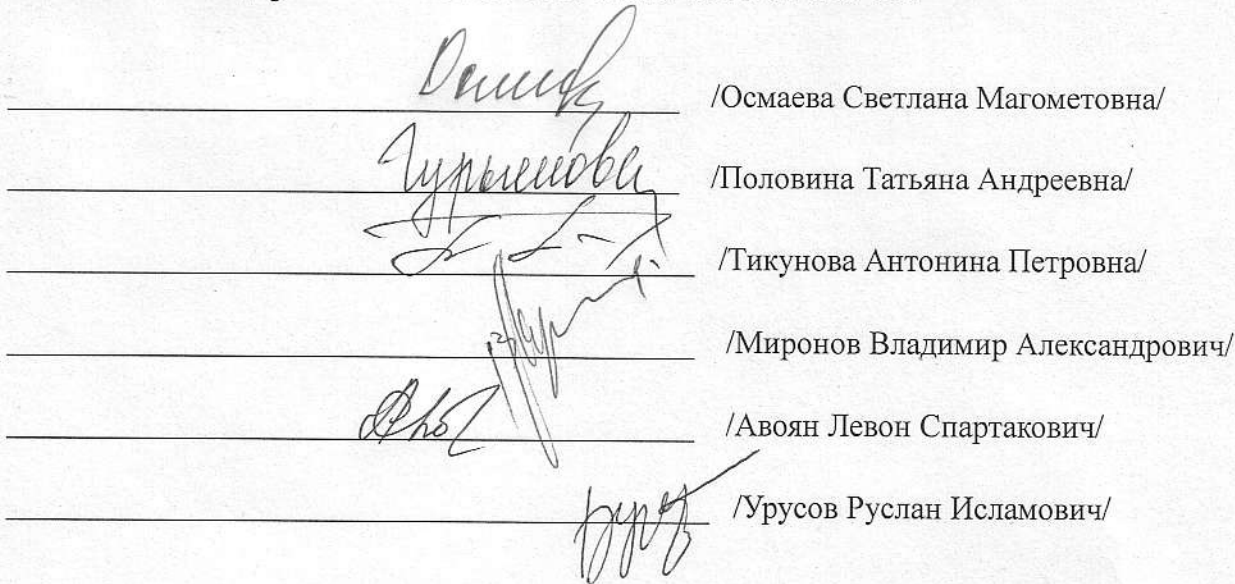 /Осмаева Светлана Магометовна/
Гурьенова /Половина Татьяна Андреевна/
/Тикунова Антонина Петровна/
/Миронов Владимир Александрович/
/Авоян Левон Спартакович/
/Урусов Руслан Исламович/